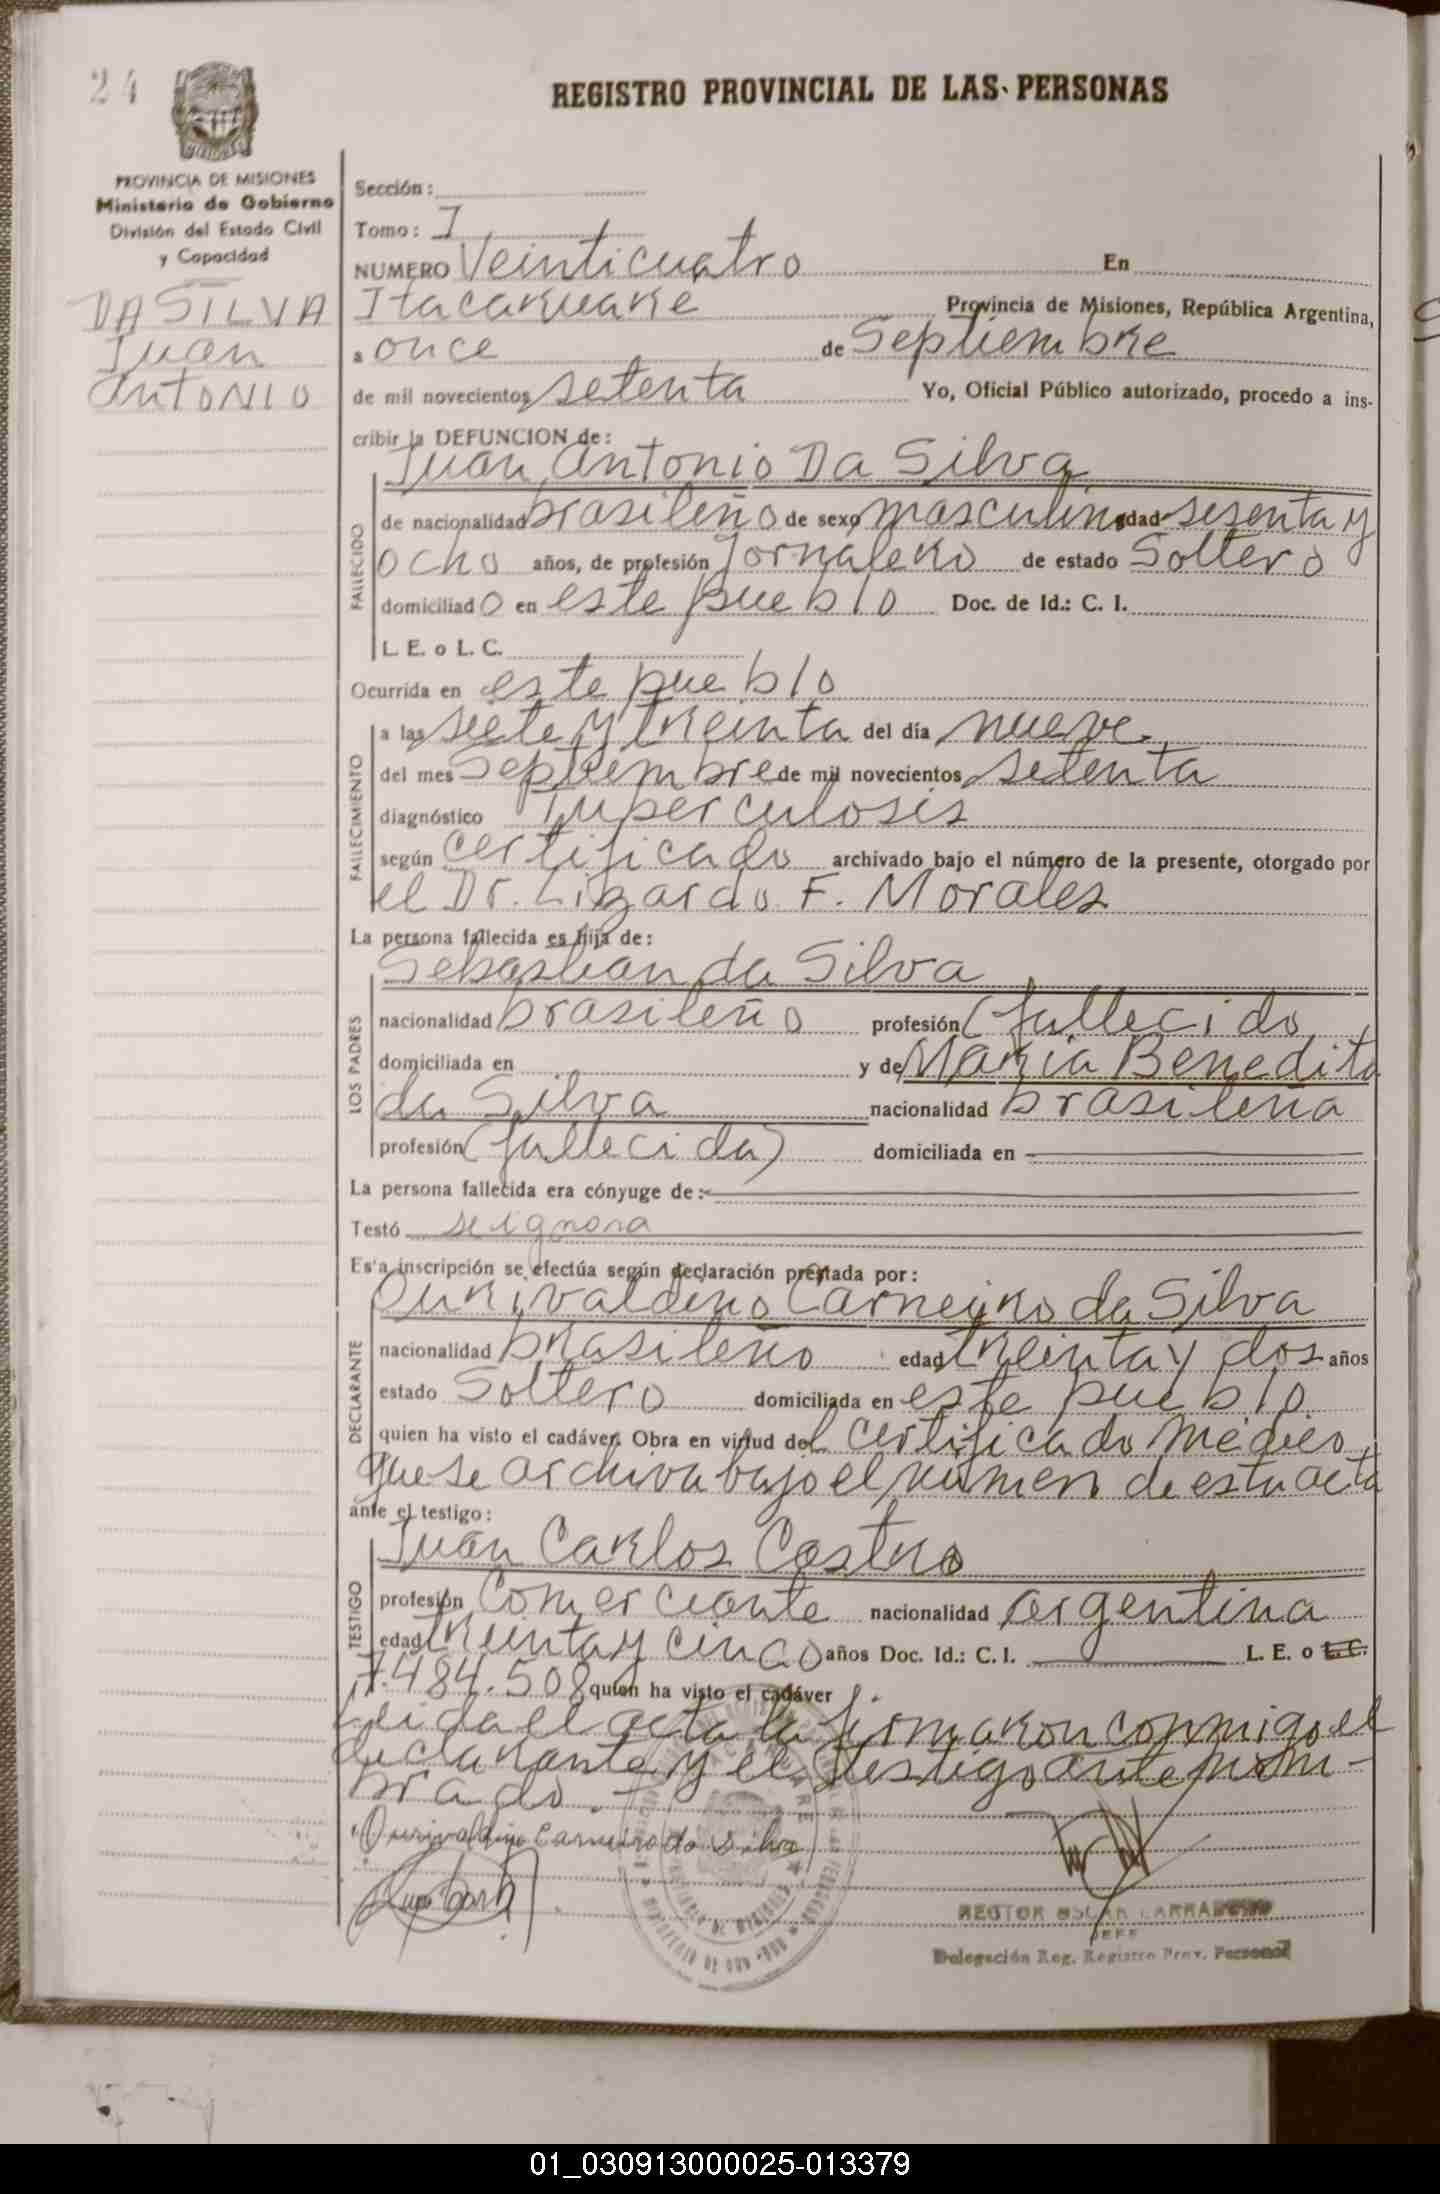 24
REGISTRO PROVINCIAL DE LAS PERSONAS
PROVINCIA DE MISIONES
Ministerio de Gobierno
División del Estado Civil
y Capacidad
DA SILVA
Juan
Antonio
Sección:
Tomo: I
NUMERO Veinticuatro En
Itacaruare Provincia de Misiones, República Argentina,
a once de Septiembre
de mil novecientos setenta Yo, Oficial Público autorizado, procedo a ins-
cribir la DEFUNCION de:
Juan Antonio Da Silva
FALLECIDO
de nacionalidad brasileño de sexo masculino edad sesenta y
ocho años, de profesión Jornalero de estado Soltero
domiciliado en este pueblo Doc. de Id.: C. I.
L. E. o L. C.
Ocurrida en este pueblo
FALLECIMIENTO
a las siete y treinta del día nueve
del mes Septiembre de mil novecientos setenta
diagnóstico Tuberculosis
según certificado archivado bajo el número de la presente, otorgado por
el Dr. Lizardo F. Morales
La persona fallecida es hija de:
LOS PADRES
Sebastian da Silva
nacionalidad brasileño profesión (fallecido
domiciliada en y de Maria Benedita
da Silva nacionalidad brasileña
profesión (fallecida) domiciliada en
La persona fallecida era cónyuge de:
Testó se ignora
Esta inscripción se efectúa según declaración prestada por:
DECLARANTE
Ourivaldino Carneiro da Silva
nacionalidad brasileño edad treinta y dos años
estado Soltero domiciliada en este pueblo
quien ha visto el cadáver. Obra en virtud del Certificado Médico
que se archiva bajo el número de esta acta
ante el testigo:
TESTIGO
Juan Carlos Castro
profesión Comerciante nacionalidad argentina
edad treinta y cinco años Doc. Id.: C. I. L. E. o L. C.
7.484.508 quien ha visto el cadáver
Leida el acta la firmaron conmigo el
declarante y el testigo antenom-
brado.-
Ourivaldino Carneiro da Silva
HECTOR OSCAR
JEFE
Delegación Reg. Registro Prov. Personas
01_030913000025-013379